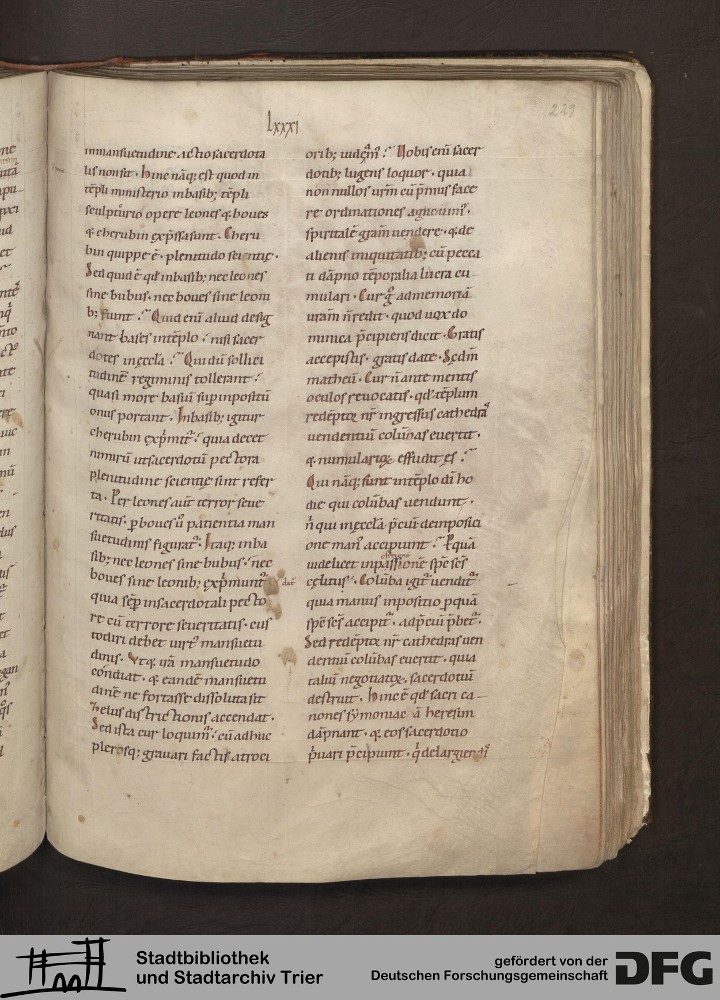 Lxxxı
229
inmansuetudine actio sacerdota
lis non sit. hinc nāq; est quod in
tēpli ministerio inbasib; tēpli
sculpturio opere leones & boues
& cherubin expssa sunt. Cheru
bin quippe ē. plenitudo scientie.
Sed quid ē qđ inbasib; nec leones
sine bubus. nec boues sine leoni
b; fiunt. Quid enī aliud desig
nant bases intēplo. nisi sacer
dotes in ęccła. Qui dū sollici
tudinē regiminis tollerant.
quasi more basiū supinpositū
onus portant. Inbasib; igitur
cherubin exprimit̃. quia decet
nimirū ut sacerdotū pectora
plenitudine scientię sint refer
ta. Per leones aut̄ terror seue
ritatis. p boues ū patientia man
suetudinis figurat̃. Itaq; inba
sib; nec leones sine bubus. nec
boues sine leonib; exprimunt̃
quia sēp insacerdotali pecto
re cū terrore seueritatis. cus
todiri debet uirt̃ mansuetu
dinis. Vt & irā mansuetudo
condiat. & eandē mansuetu
dinē ne fortasse dissoluta sit
zelus districtionis accendat.
Sed ista cur loquim̃. cū adhuc
plerosq; grauari factis atroci
orib; uidem̃. Uobis enī sacer
dotib; lugens loquor. quia
non nullos urm̄ cū pmiis face
re ordinationes agnouim̃.
spiritalē gram̄ uendere. & de
alienis iniquitatib; cū pecca
ti dāpno tēporalia lucra cu
mulari. Cur g̊ admemoriā
uram̄ n̄ redit. quod uox do
minica pcipiens dicit. Gratis
accepistis. gratis date. Sedm̄
matheū. Cur n̄ ante mentis
oculos reuocatis. qđ tēplum
redēptor nr̄ ingressus cathedra
uendentiū colūbas euertit.
& numularior effudit es.
Qui nāq; sunt intēplo di ho
die qui colūbas uendunt.
n̄ qui in ęccła pciū deinposici
one man̄ accipiunt. P quā
uidelicet inpassionē spc scs
cęlitus. Colūba igit̃ uendit̃
quia manus inpositio p quā
spc scs accipit̃. adpciū pbet̃.
Sed redēptor nr̄ cathedras uen
dentiū colūbas euertit. quia
taliū negotiator. sacerdotiū
destruit. hinc ē qđ sacri ca-
nones sỳmoniacā heresim
dāpnant. & eos sacerdotio
puari pcipiunt. q̇ delargiendi
Stadtbibliothek
und Stadtarchiv Trier
gefördert von der
Deutschen Forschungsgemeinschaft
DFG